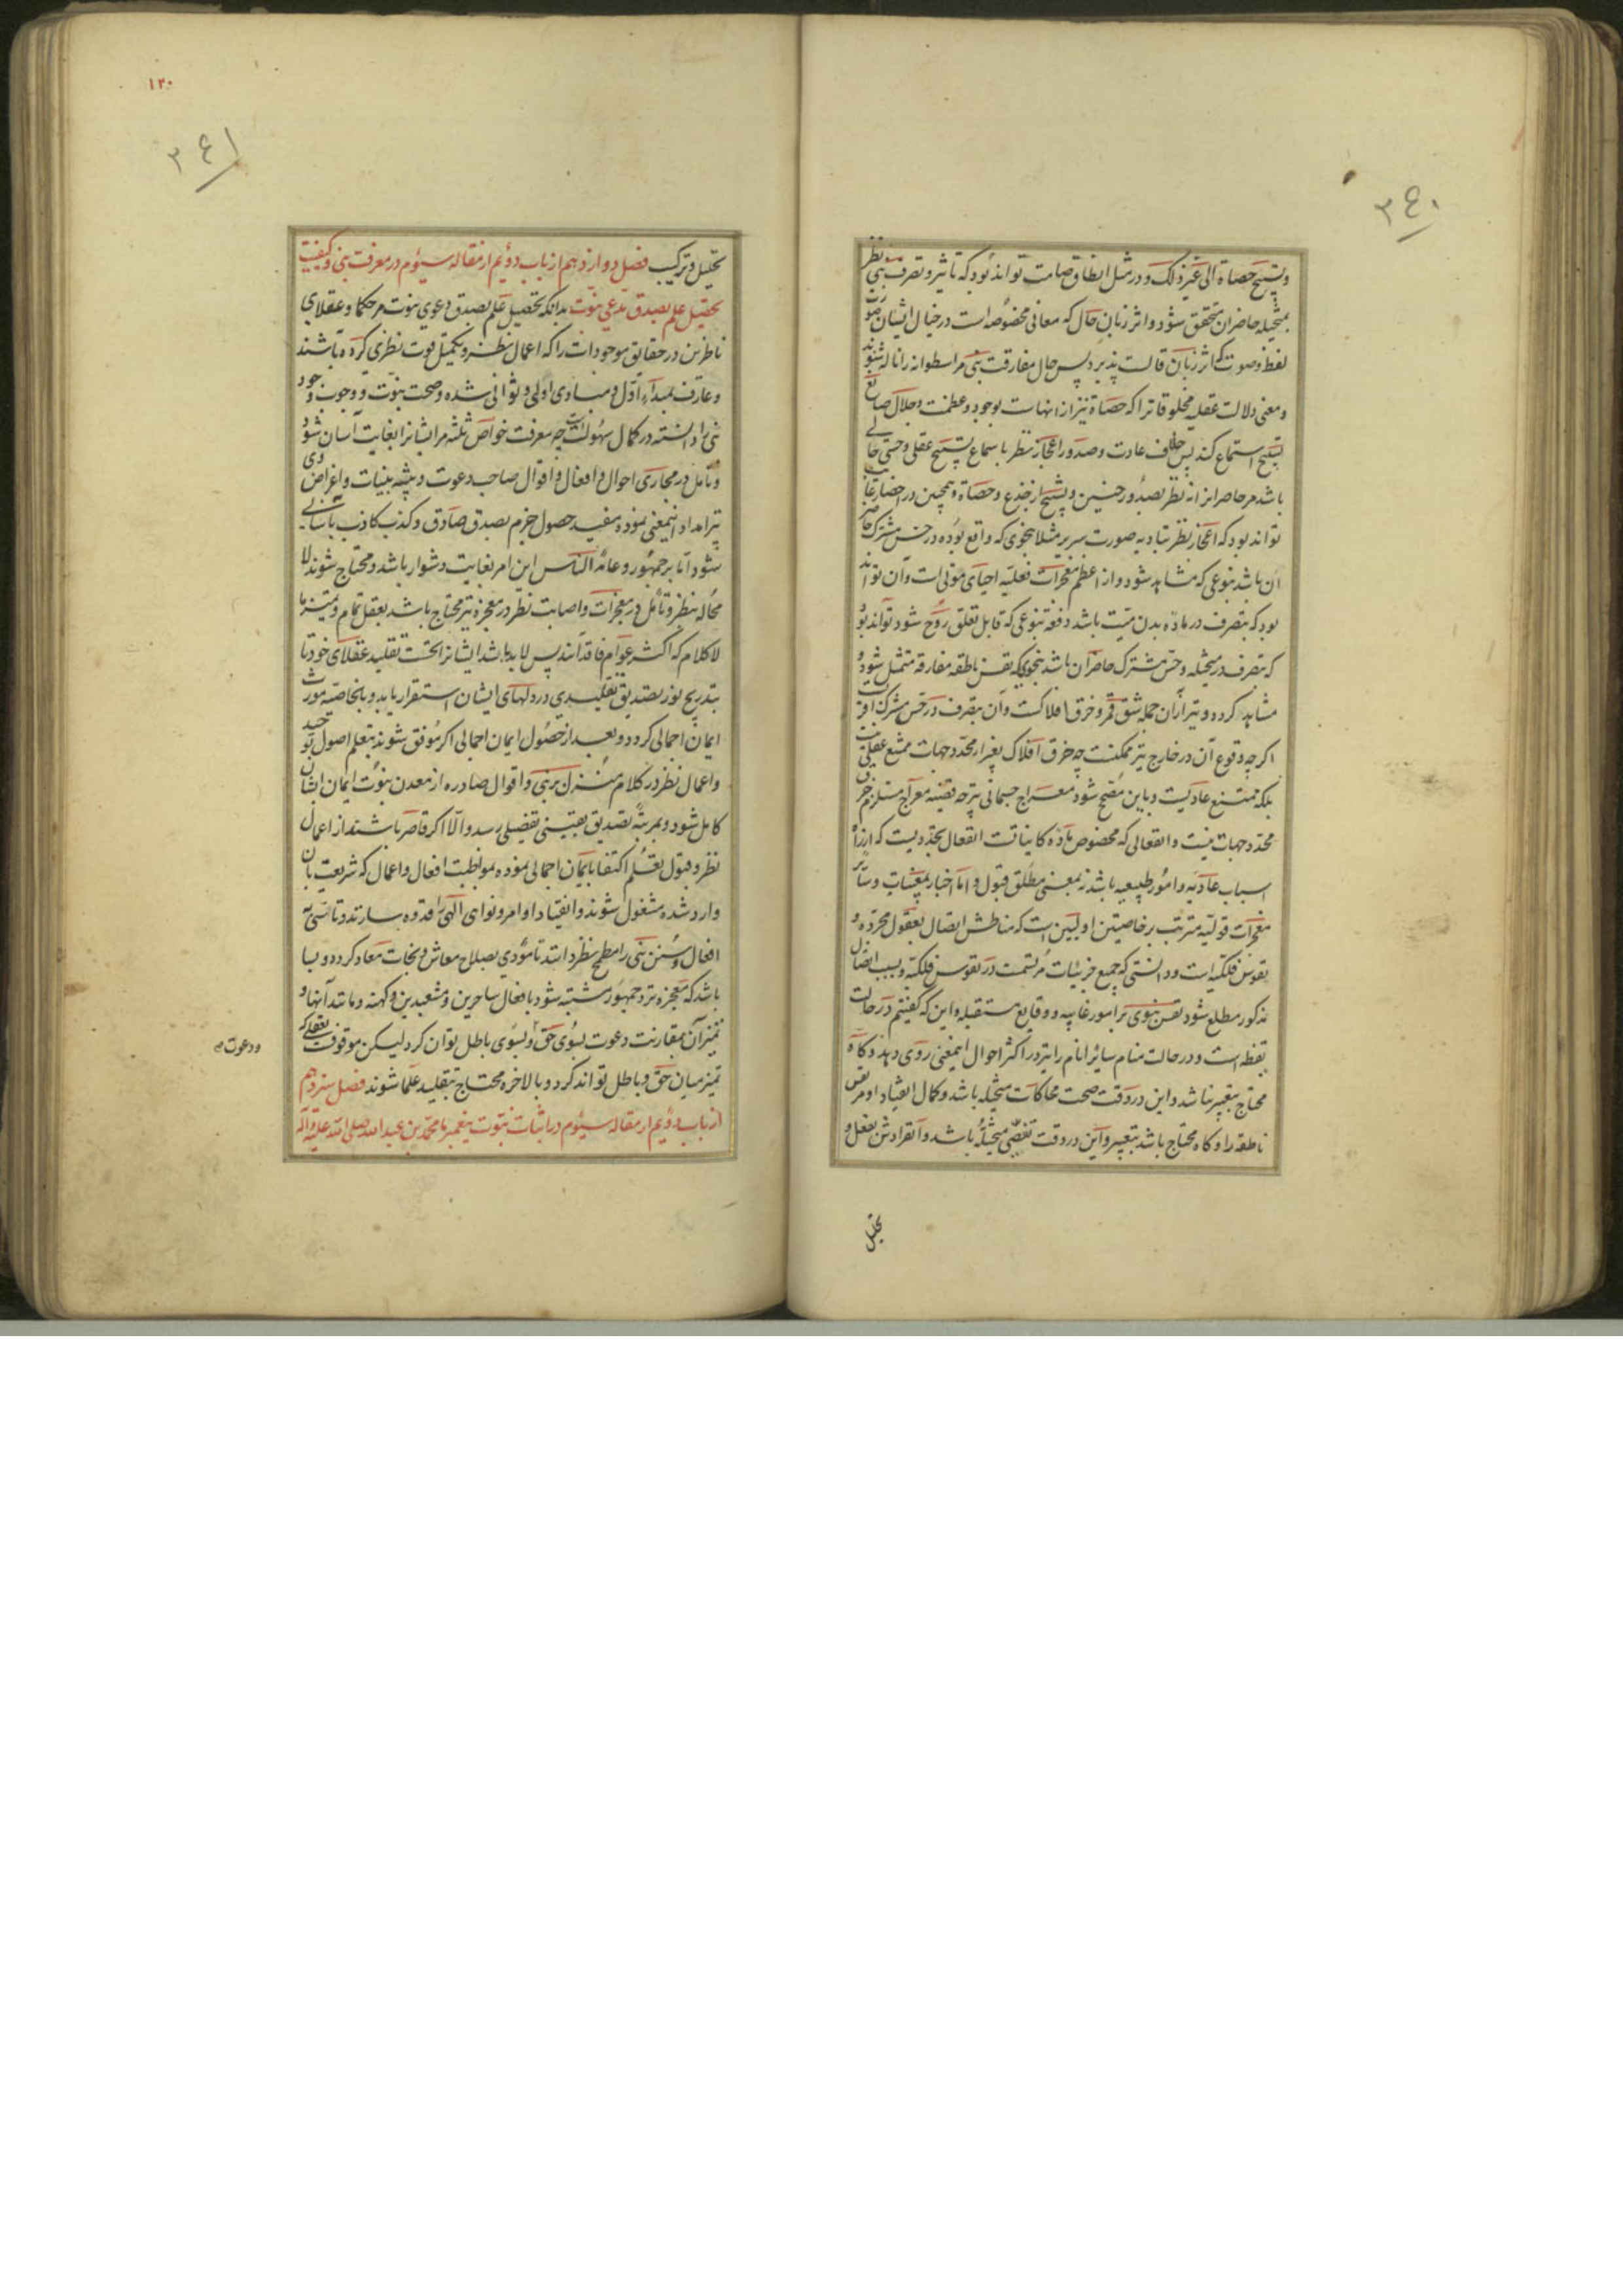 ۳۴۰
وتسبیح حصاة الی غیر ذلک و در مثل انطاق صامت تواند بود که تاثیر و تصرف نبی نظر
بمتخیله حاضران متحقق شود و اثر زبان حال که معانی مخصوصه است در خیال ایشان صورت
لفظ و صوت که اثر زبان قالست پذیرد پس حال مفارقت نبی مر اسطوانه را ناله شنوند
و معنی دلالت عقلیه مخلوقاترا که حصاة نیز از انهاست بوجود و عظمت و جلال صانع
تسبیح استماع کنند پس خلاف عادت و صدور اعجاز نظر باسماع تسبیح عقلی و حسی حالی
باشد مر حاضرانرا نه نظر بصدور حنین و تسبیح از جذع و حصاة و همچنین در احضار غایب
تواند بود که اعجاز نظر بتادیه صورت سریر مثلا بنحوی که واقع بوده در حس مشترک حاضر
ان باشد بنوعی که مشاهد شود و از اعظم معجزات فعلیه احیای موتی است و آن تواند
بود که بتصرف در ماده بدن میت باشد دفعة بنوعی که قابل تعلق روح شود و تواند بود
که بتصرف در متخیله و حس مشترک حاضران باشد بنحوی که نفس ناطقه مفارقه متمثل شود و
مشاهد کردد و نیز از آن جمله شق قمر و خرق افلاکست و آن بتصرف در حس مشترک اقربست
اکر چه وقوع آن در خارج نیز ممکنست چه خرق افلاک بغیر از محدد جهات ممتنع عقلی نیست
بلکه ممتنع عادیست و باین مصحح شود معراج جسمانی نیز چه قضیه معراج مستلزم خرق
محدد جهات نیست و انفعالی که مخصوص ماده کاینات است انفعال تجددیست که از راه
اسباب عادیه و امور طبیعیه باشد نه بمعنی مطلق قبول و اما اخبار بمغیبات و سایر
معجزات قولیه مترتب بر خاصیتین اولیین است که مناطش اتصال بعقول مجرده و
نفوس فلکیه است و دانستی که جمیع جزئیات مرتسمست در نفوس فلکیه و بسبب اتصال
مذکور مطلع شود نفس نبوی بر امور غایبه و وقایع مستقبله و این که کفتیم در حالت
یقظه است و در حالت منام سایر انام را نیز در اکثر احوال اینمعنی روی دهد و کاه
محتاج بتعبیر نباشد و این در وقت صحت محاکات متخیله باشد و کمال انقیاد او مر نفس
ناطقه را و کاه محتاج باشد بتعبیر و این در وقت تعصی متخیله باشد و انفرادش بفعل و
تحلیل
۱۲۰
۳۴۱
تحلیل و ترکیب فصل دوازدهم از باب دویم از مقاله سیوم در معرفت نبی و کیفیت
تحصیل علم بصدق مدعی نبوت بدانکه تحصیل علم بصدق دعوی نبوت مر حکما و عقلای
ناظرین در حقایق موجودات را که اعمال نظر و تکمیل قوت نظری کرده باشند
و عارف بمبداء اول و مبادی اولی و ثوانی شده و صحت نبوت و وجوب وجود
نبی را دانسته در کمال سهولت است چه معرفت خواص ثلثه مر ایشانرا بغایت آسان شود
و تامل در مجاری احوال و افعال و اقوال صاحب دعوت و پیشه بینیات و اغراض وی
نیز امداد اینمعنی نموده مفید حصول جزم بصدق صادق و کذب کاذب باسانی
شود اما بر جمهور و عامة الناس این امر بغایت دشوار باشد و محتاج شوند لا
محاله بنظر و تامل در معجزات و اصابت نظر در معجزه نیز محتاج باشد بعقل تمام و تمیز ما
لا کلام که اکثر عوام فاقد آنند پس لابد باشد ایشانرا نخست تقلید عقلای خود تا
بتدریج نور تصدیق تقلیدی در دلهای ایشان استقرار یابد و بالخاصیه مورث
ایمان اجمالی کردد و بعد از حصول ایمان اجمالی اکر موفق شوند بتعلم اصول توحید
و اعمال نظر در کلام منزل بر نبی و اقوال صادره از معدن نبوت ایمان ایشان
کامل شود و بمرتبه تصدیق یقینی تفصیلی رسد و الا اکر قاصر باشند از اعمال
نظر و قبول تعلم اکتفا بایمان اجمالی نموده بمواظبت افعال و اعمال که شریعت بان
وارد شده مشغول شوند و انقیاد اوامر و نواهی الهی را قدوه سازند و تاسی به
افعال و سنن نبی را مطمح نظر دانند تا مؤدی بصلاح معاش و نجات معاد کردد و بسا
باشد که معجزه نزد جمهور مشتبه شود بافعال ساحرین و مشعبدین و کهنه و مانند آنها و
تمیز آن بمقارنت دعوت بسوی حق و بسوی باطل توان کرد لیکن موقوفست بعقلی که
ودعوت
تمیز میان حق و باطل تواند کرد و بالاخره محتاج بتقلید علما شوند فصل سیزدهم
از باب دویم از مقاله سیوم در اثبات نبوت پیغمبر ما محمد بن عبد الله صلی الله علیه و آله